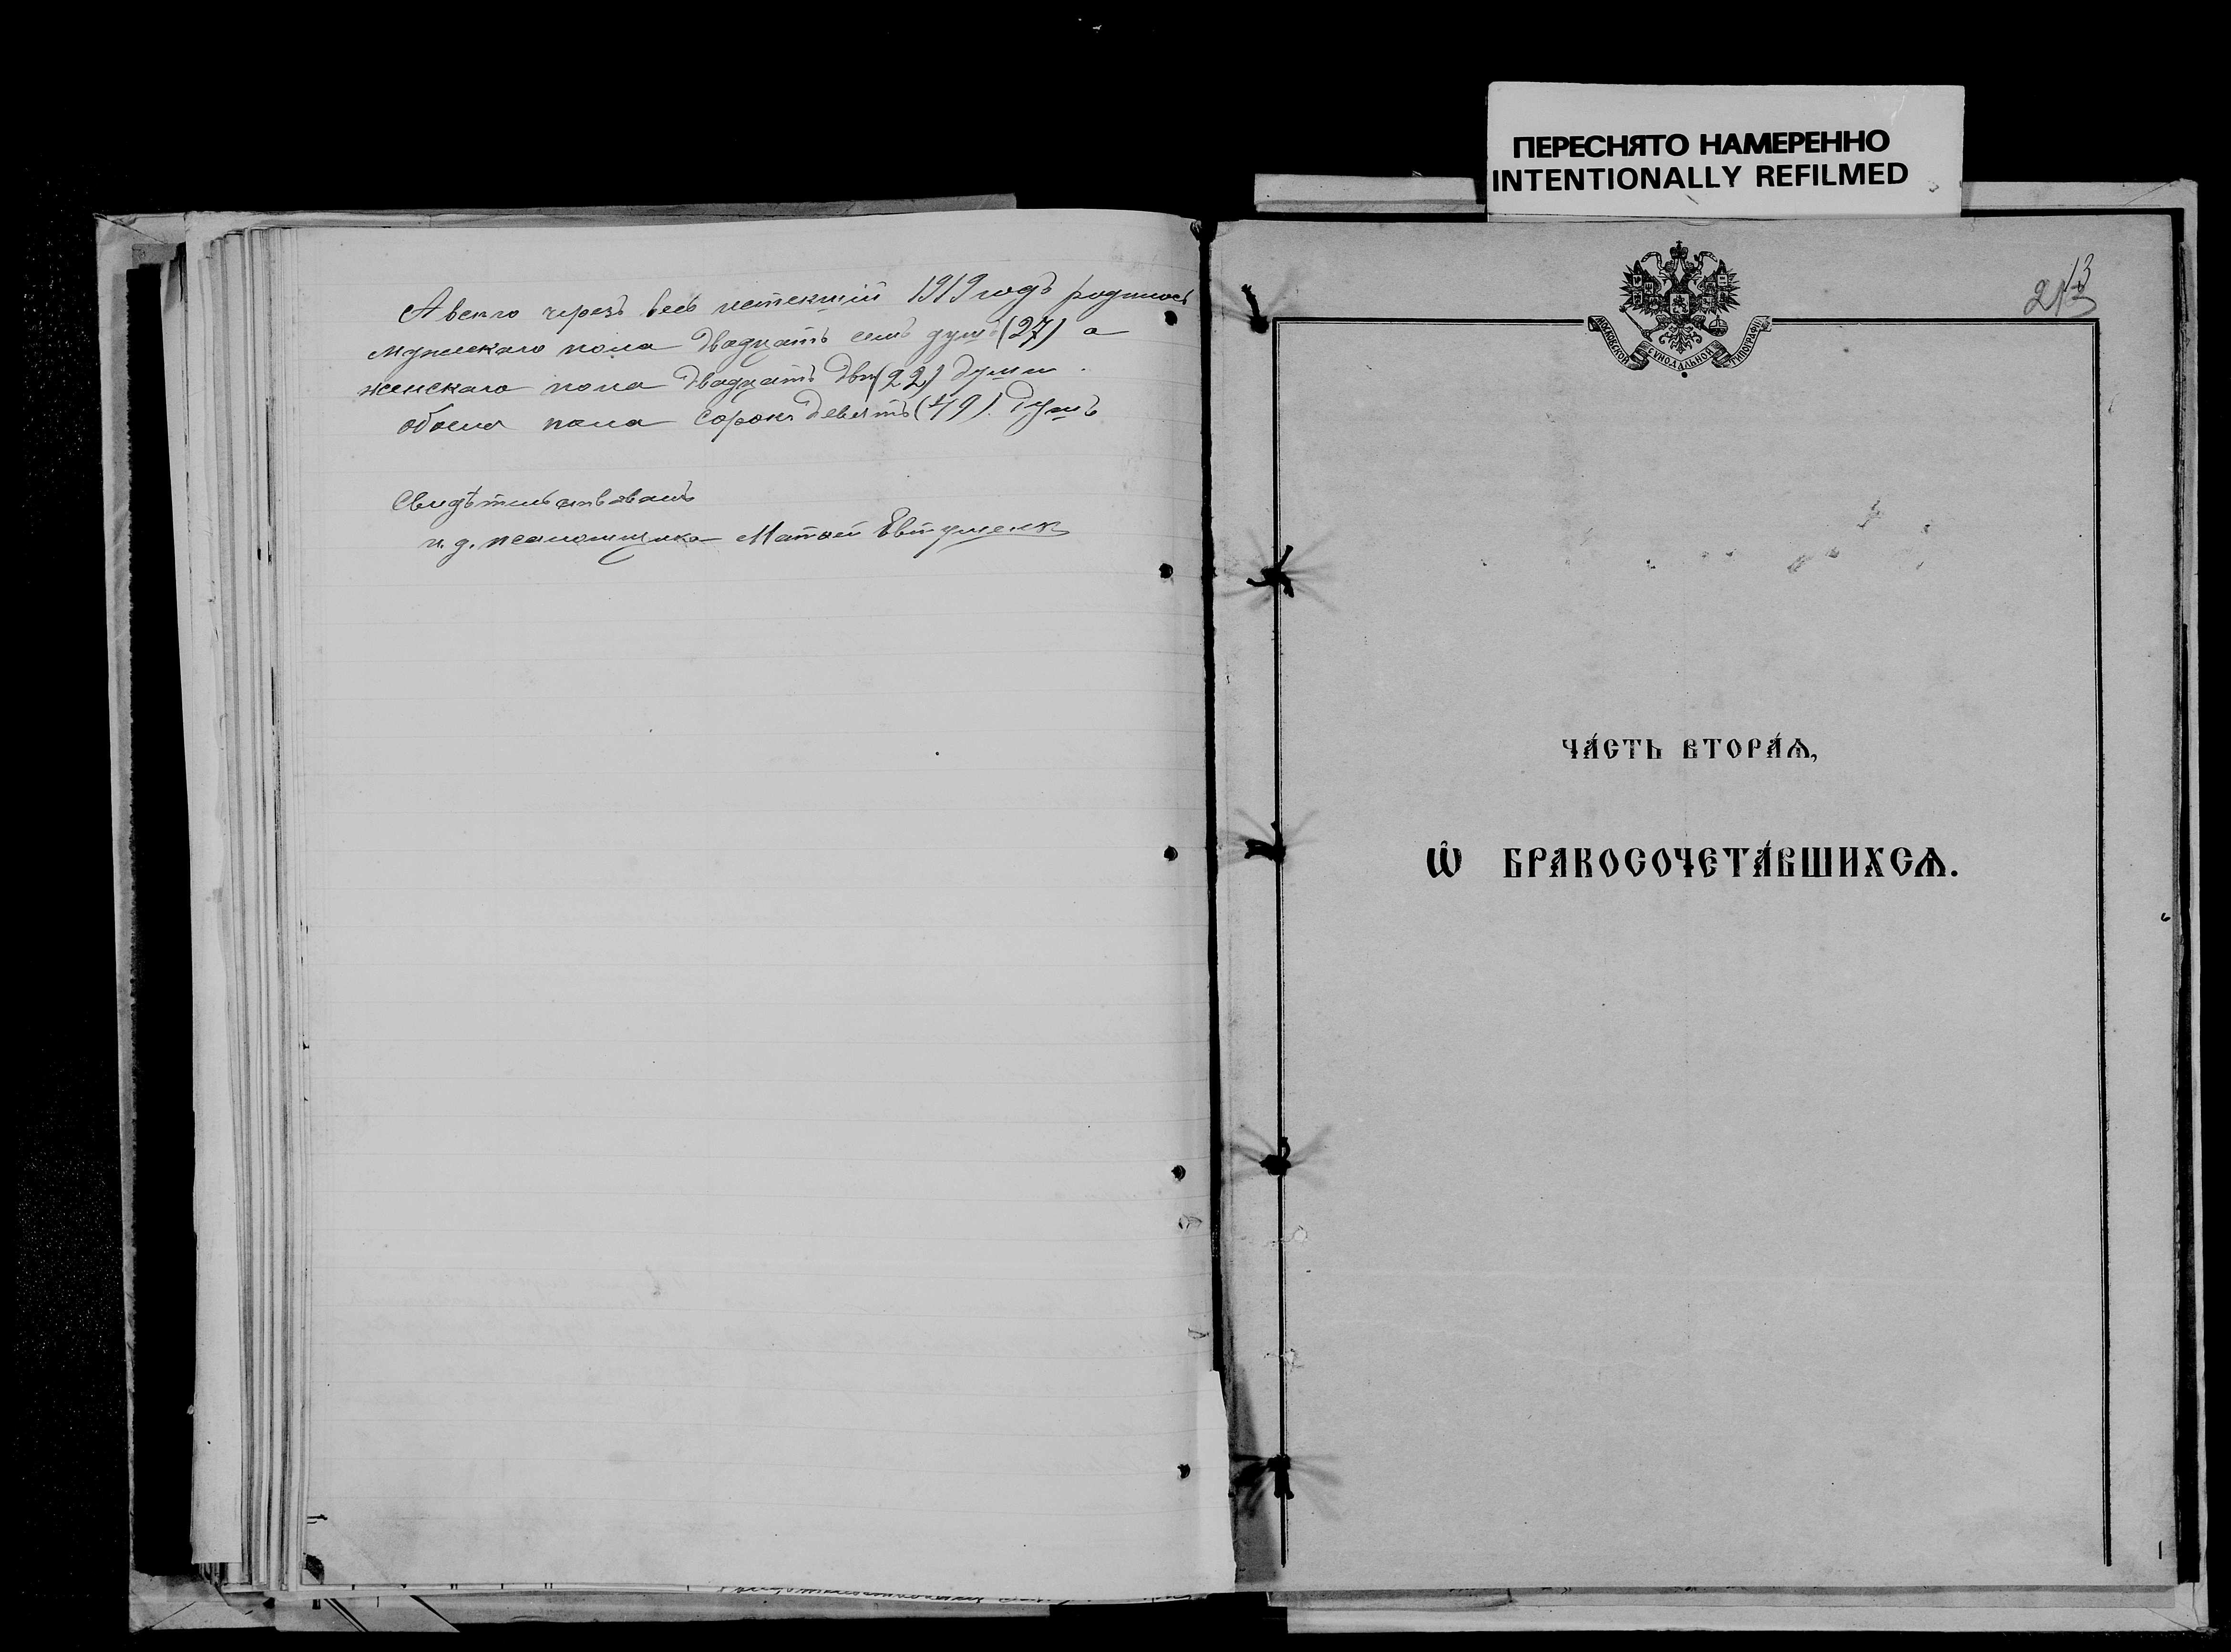 А всего черезъ весь истекшій 1919 годъ родилось
мужескаго пола двадцать семь душъ (27) а
женскаго пола двадцать двѣ (22) души.
обоего пола сорокъ девять (49) душъ
Свидѣтельствовалъ
и. д. псаломщика Матвей Евтушенк
ПЕРЕСНЯТО НАМЕРЕННО
INTENTIONALLY REFILMED
213
МОСКОВСКОЙ СѴНОДАЛЬНОЙ ТИПОГРАФІИ
ЧА́СТЬ ВТОРА́Ѧ,
Ѽ БРАКОСОЧЕТА́ВШИХСѦ.